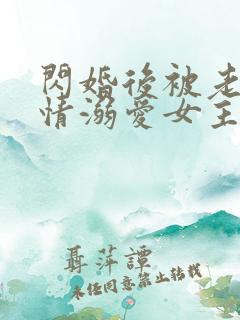 閃婚後被老
情溺愛女主
聶萍譚
未任同意禁止轉載